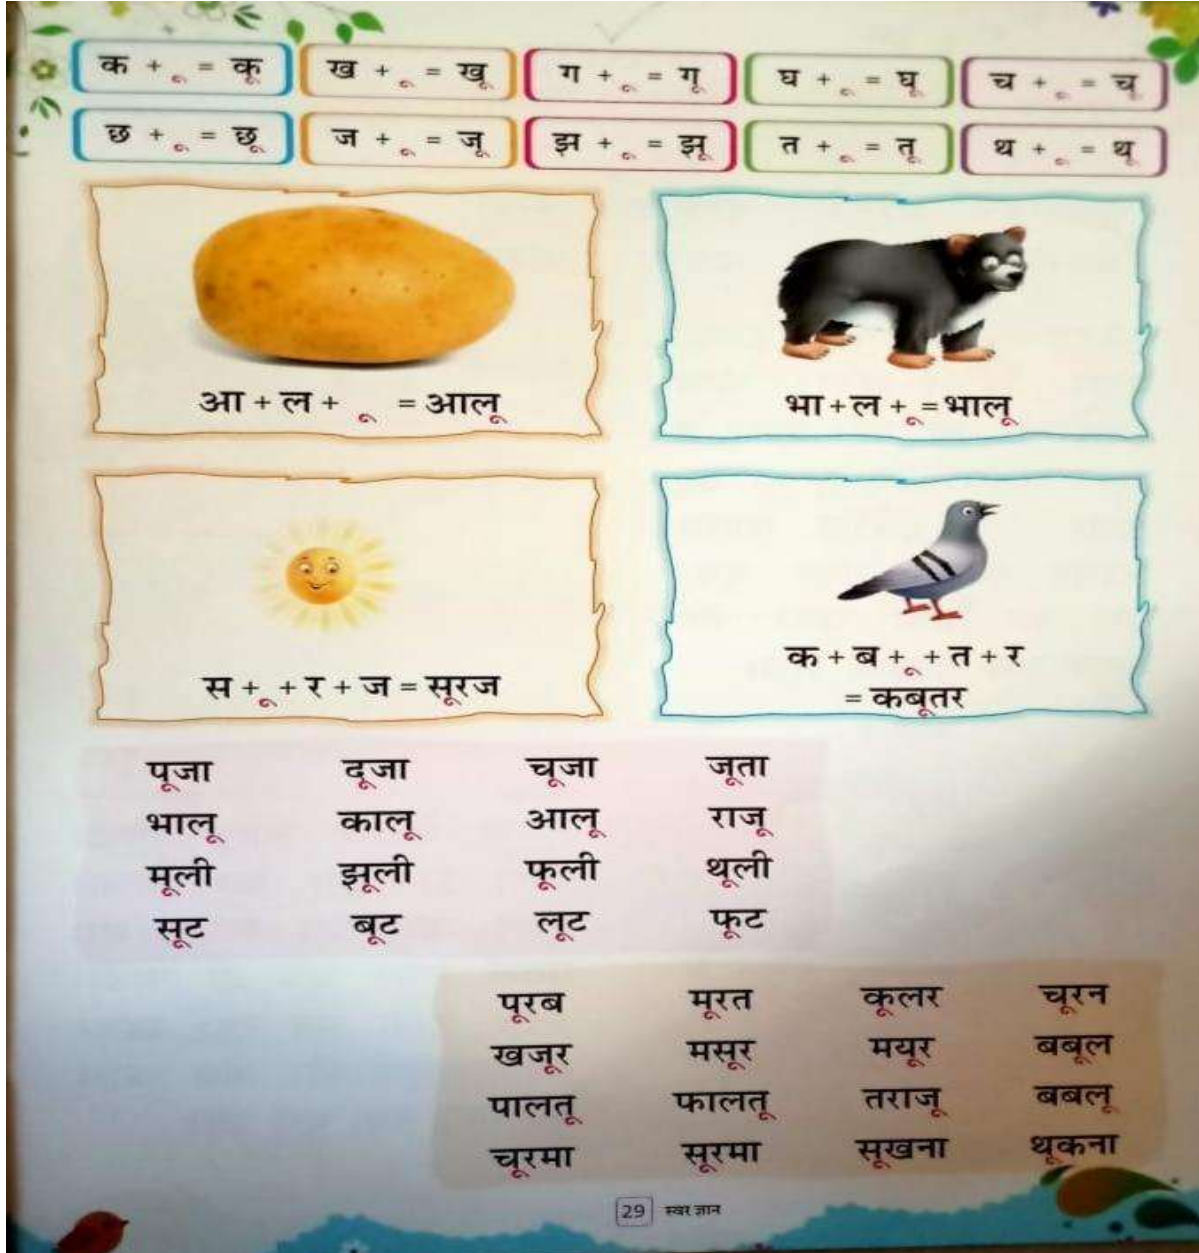 क + ू = कू ख + ू = खू ग + ू = गू घ + ू = घू च + ू = चू
छ + ू = छू ज + ू = जू झ + ू = झू त + ू = तू थ + ू = थू
आ + ल + ू = आलू
भा + ल + ू = भालू
स + ू + र + ज = सूरज
क + ब + ू + त + र
= कबूतर
पूजा दूजा चूजा जूता
भालू कालू आलू राजू
मूली झूली फूली थूली
सूट बूट लूट फूट
पूरब मूरत कूलर चूरन
खजूर मसूर मयूर बबूल
पालतू फालतू तराजू बबलू
चूरमा सूरमा सूखना थूकना
29 स्वर ज्ञान